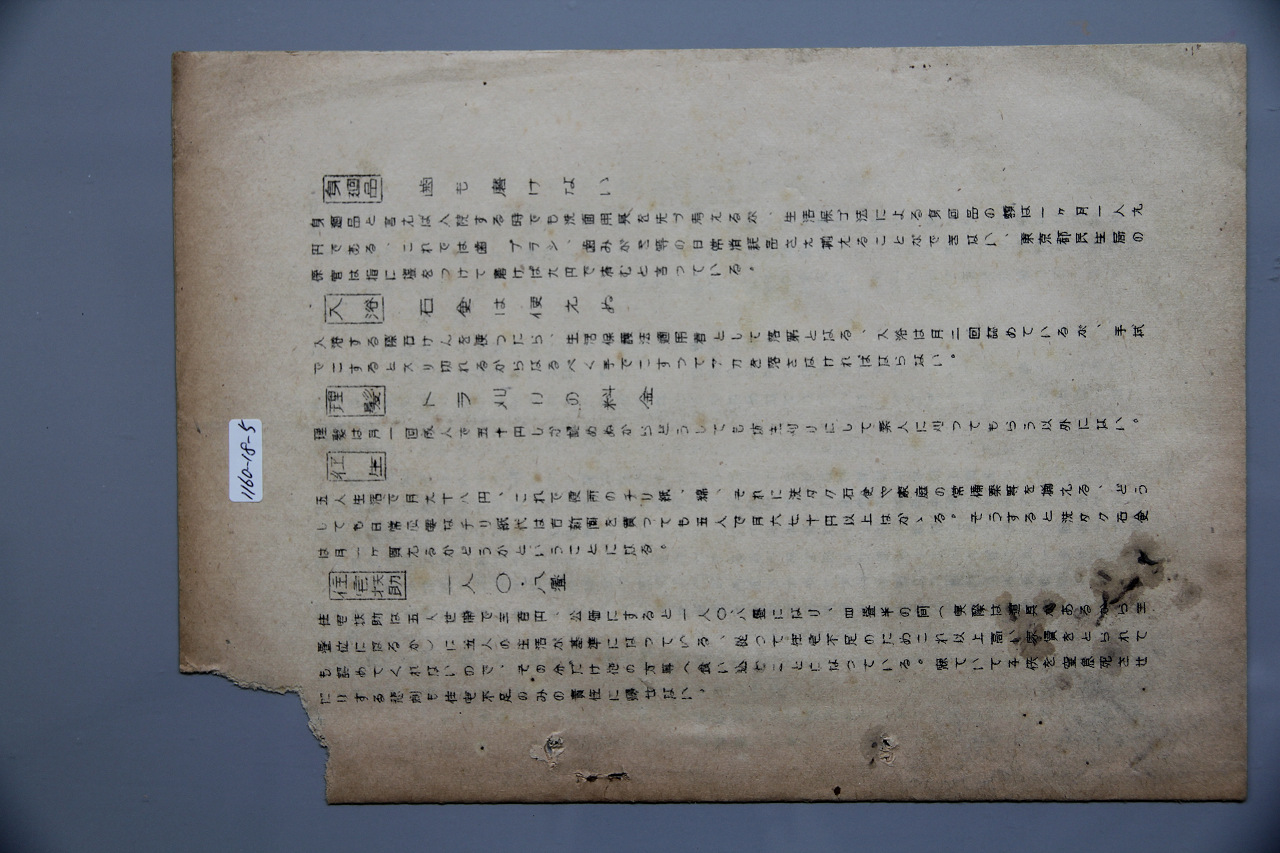 身廻品 歯も磨けない
身廻品と言えば入院する時でも洗面用具を先づ考えるが、生活保護法による身廻品の額は一ヶ月一人九
円である、これでは歯ブラシ、歯みがき等の日常消耗品さえ揃えることができない、東京都民生局の
保官は指に塩をつけて磨けば九円で済むと言っている。
入浴 石倉は使えぬ
入浴する際石けんを使つたら、生活保護法適用者として落第となる、入浴は月二回認めているが、手拭
でこするとスリ切れるからなるべく手でこすつてアカを落さなければならない。
理髪 トラ刈りの料金
理髪は月一回成人で五十円しか認めぬからどうしても坊主刈りにして素人に刈つてもらう以外にない。
五人生活で月九十八円、これで便所のチリ紙、綿、それに洗タク石倉や家庭の常備薬等を揃える、どう
しても日常必要なチリ紙代は古新聞を買つても五人で月六七十円以上はかゝる。そうすると洗タク石倉
は月一ヶ買えるかどうかということになる。
住宅扶助 一人〇・八畳
住宅扶助は五人世帯で三百円、公価にすると一人〇、八畳になり、四畳半の間へ実際は道具もあるから三
畳位になるか)に五人の生活が基準になつている、従つて住宅不足のためこれ以上高い家賃をとられて
も認めてくれないので、その分だけ他の万事へ食い込むことになつている。寝ていて子供を窒息死させ
たりする悲劇も住宅不足のみの責任に帰せない。
1160-18-5